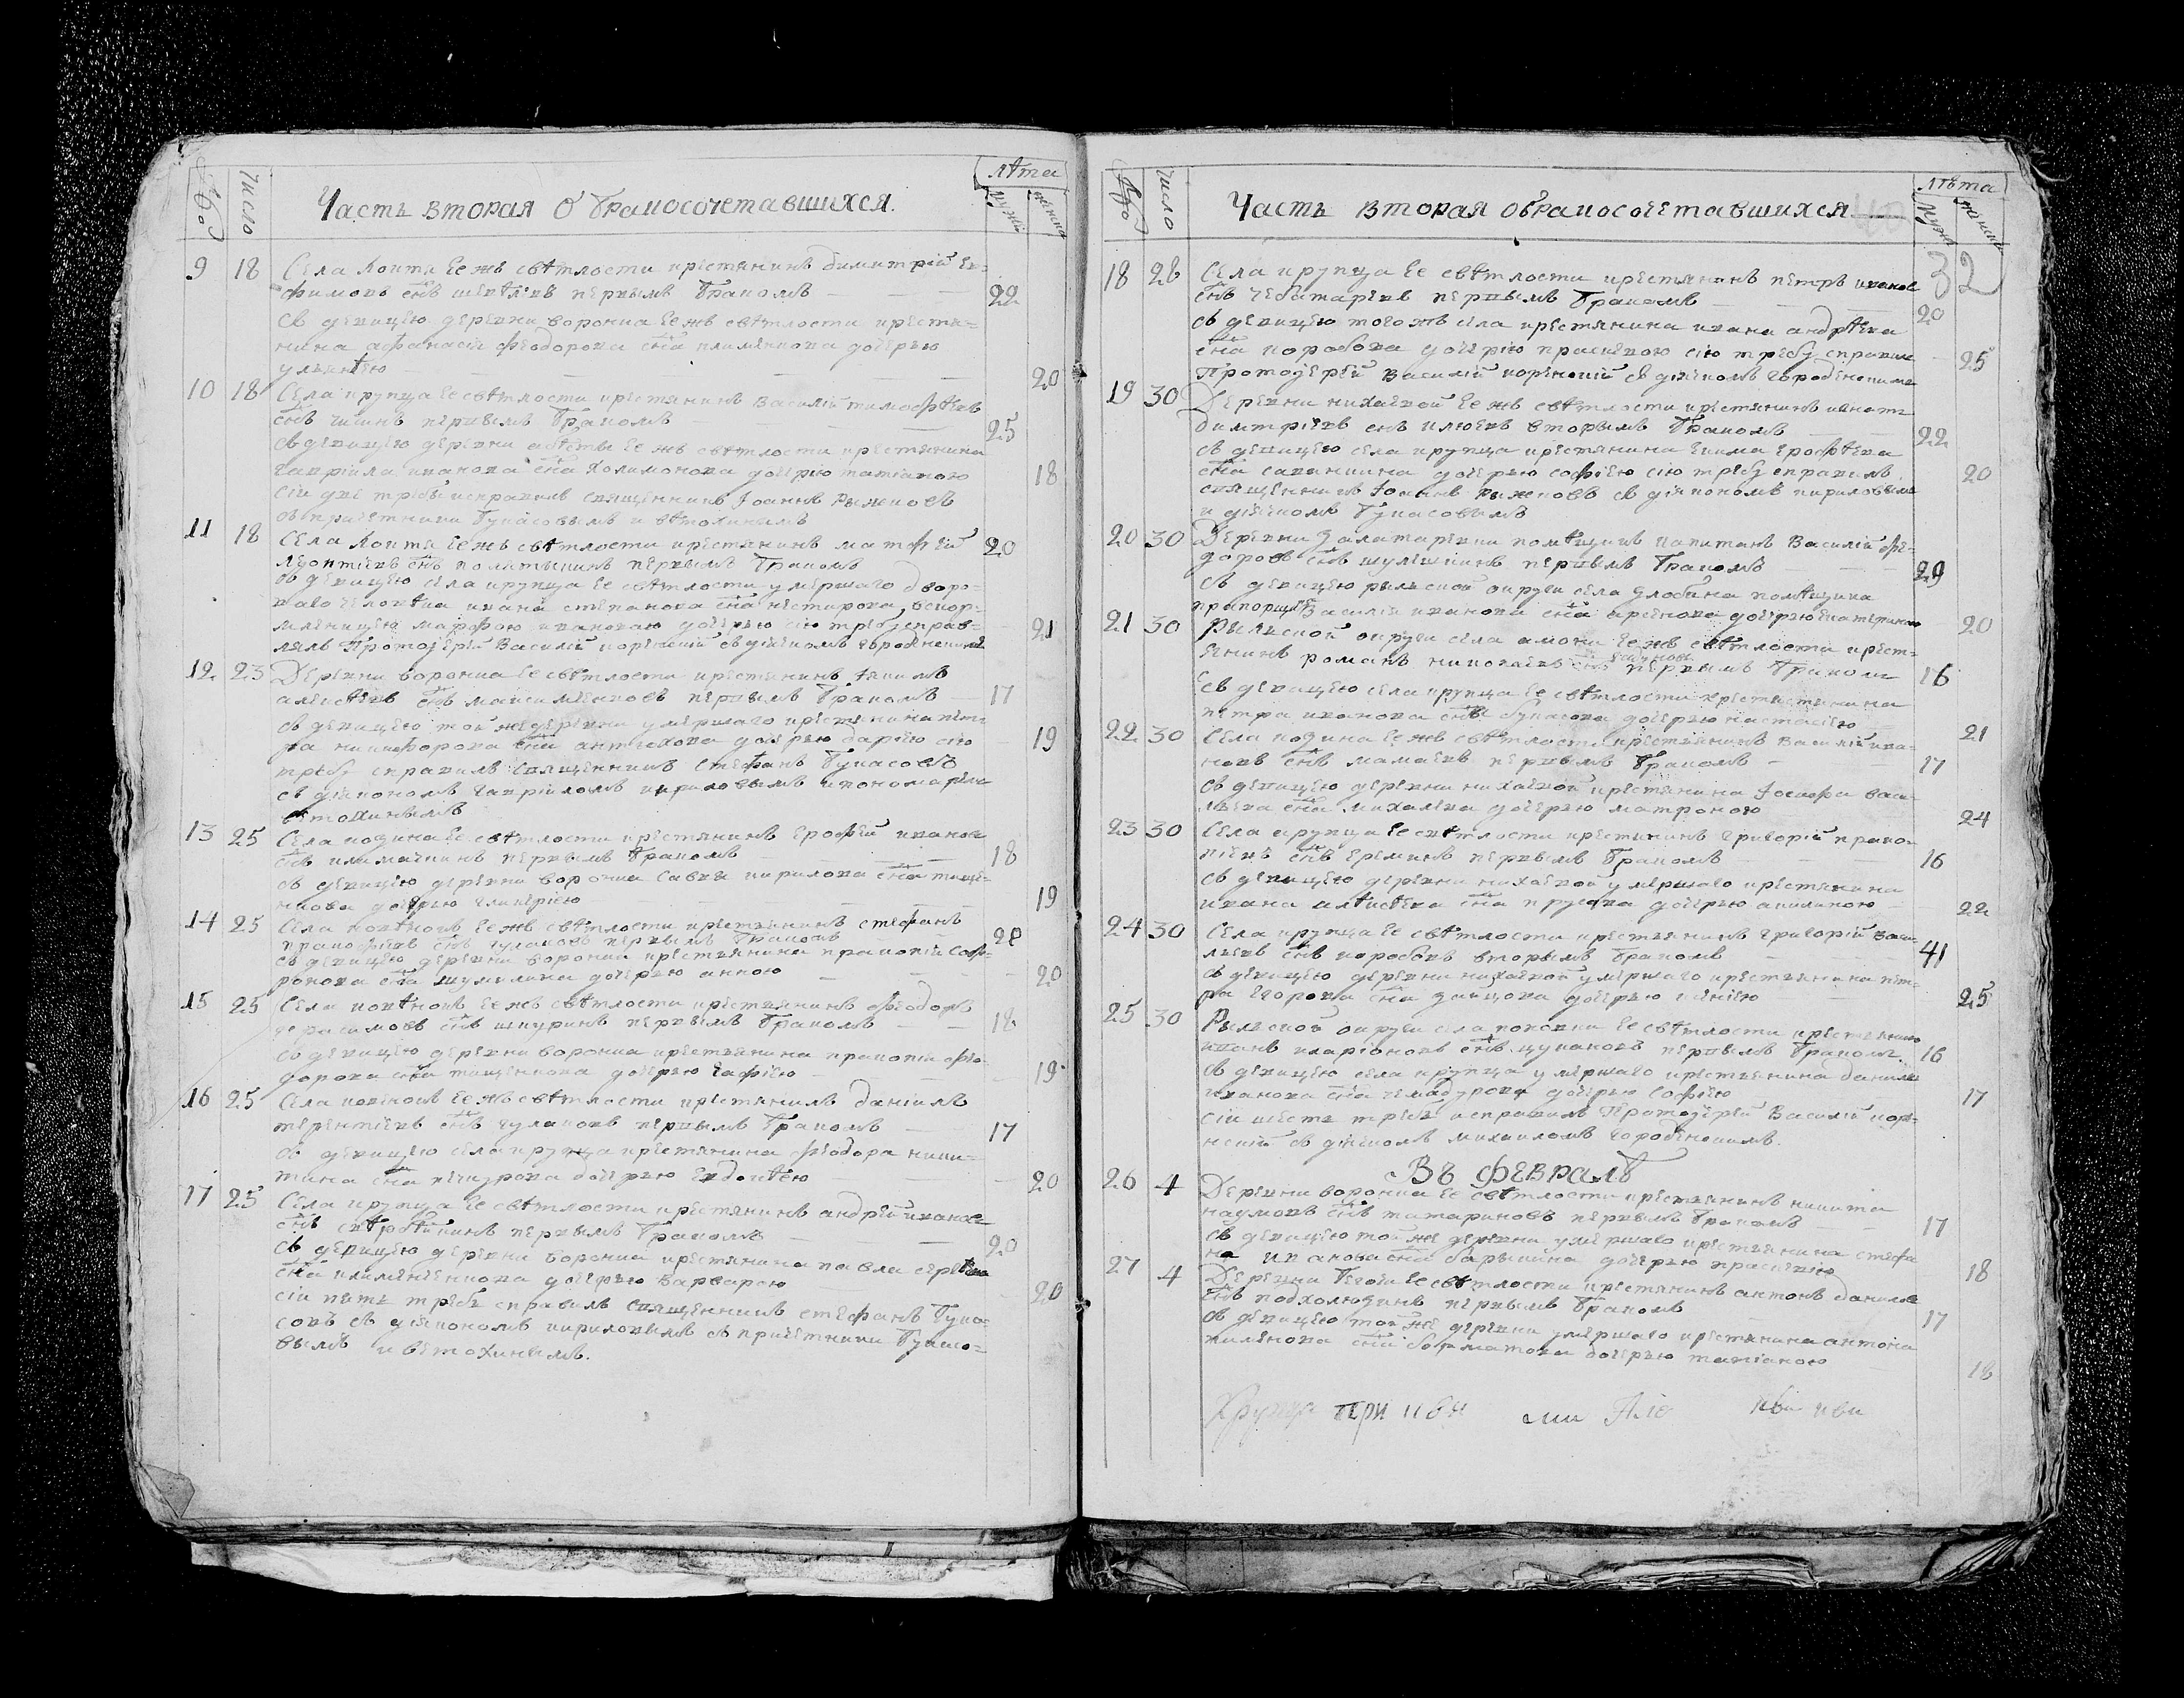 лѣта
число
мужей
женска
Часть вторая О Бракосочетавшихся.
9 18 Села локти Ея жъ свѣтлости крестянинъ димитрій Еѵ=
фимовъ снъ первымъ бракомъ 22
Съ девицею деревни воронка Ея жъ свѣтлости крестя=
нина афанасія феодорова сна клименкова дочерью
20
10 18 Села крупца Ея свѣтлости крестянинъ василій тимофѣевъ
снъ первымъ бракомъ 25
съ девицею деревни Ея жъ свѣтлости крестянина
гавріила иванова сна холимонова дочерію татіаною 18
сіи две требы исправилъ священникъ Іоаннъ Рыжковъ
съ причетники букасовымъ и вѣтохинымъ
11 18 Села локти Ея жъ свѣтлости крестянинъ матфей 20
леонтіевъ снъ первымъ бракомъ
съ девицею села крупца Ея свѣтлости умершаго дворо=
ваго человека ивана степанова сна нестирова, вскор=
мленицею марфою ивановою дочерью сію требу справ= 21
лялъ Протоіерей Василій кореневскій съ діакономъ
12 23 Деревни воронка Ея свѣтлости крестянинъ
алексѣевъ снъ максименковъ первымъ бракомъ 17
съ девицею той же деревни умершаго крестянина пет=
ра никифорова сна антюхова дочерью дарією сію 19
требу справилъ священникъ Стефанъ Букасовъ
съ діакономъ гавріиломъ кириловымъ и пономаремъ
вѣтохинымъ
13 25 Села кодина Ея свѣтлости крестянинъ Ерофей иванов
снъ первымъ бракомъ 18
съ девицею деревни воронка Савы кирилова сна тище=
нкова дочерью гликеріею 19
14 25 Села Ея жъ свѣтлости крестянинъ стефанъ
прокофіевъ снъ гулаковъ первымъ бракомъ 20
съ девицею деревни воронка крестянина прокопія Соф=
ронова сна шумилина дочерью анною 20
15 25 Села Ея жъ свѣтлости крестянинъ феодоръ
герасимовъ снъ шкуринъ первымъ бракомъ 18
съ девицею деревни воронка крестянина прокопія фео=
дорова сна тищенкова дочерью агафіею 19
16 25 Села Ея жъ свѣтлости крестянинъ даніилъ
терентіевъ снъ гулаковъ первымъ бракомъ 17
съ девицею села крупца крестянина феодора ники=
тина сна дочерью Евдокѣею 20
17 25 Села крупца Ея свѣтлости крестянинъ андрей иванов
снъ первымъ бракомъ 20
съ девицею деревни воронка крестянина павла сергѣева
сна клименченкова дочерью варварою 20
сіи пять требъ справилъ священникъ стефанъ Бука=
совъ съ діакономъ кириловымъ съ причетники Букасо=
вымъ и вѣтохинымъ.
лѣта
число
Часть вторая о бракосочетавшихся
32
18 28 Села крупца Ея свѣтлости крестянинъ петръ иванов
снъ чеботаревъ первымъ бракомъ 20
съ девицею того жъ села крестянина ивана андрѣева
сна коробова дочерію сію требу справилъ 25
Протоіерей Василій кореневскій съ діакономъ
19 30 Деревни михаевой Ея жъ свѣтлости крестянинъ игнатъ
димтріевъ снъ клюевъ вторымъ бракомъ 22
съ девицею села крупца крестянина Екима Ерофѣева
сна саванчина дочерью софіею сію требу справилъ 20
священникъ Іоаннъ Рыжковъ съ діакономъ кириловымъ
и діячкомъ Букасовымъ
20 30 Деревни помѣщикъ капитанъ Василій фе=
доровъ снъ первымъ бракомъ 29
съ девицею рыльской округи села злобина помѣщика
прапорщика Василія иванова сна дочерью Екатериною 20
21 30 Рыльской округи села амони Ея жъ свѣтлости крест=
янинъ романъ николаевъ снъ первымъ бракомъ 16
съ девицею села крупца Ея свѣтлости крестянина
петра иванова сна букасова дочерью настасіею 21
22 30 Села кодина Ея жъ свѣтлости крестянинъ василій ива=
новъ снъ мамаевъ первымъ бракомъ 17
съ девицею деревни михаевой крестянина Іосифа васи=
льева сна михалева дочерью матроною 24
23 30 Села крупца Ея свѣтлости крестянинъ григорій проко=
піевъ снъ Ереминъ первымъ бракомъ 16
съ девицею деревни михаевой умершаго крестянина
ивана сна прусова дочерью акилиною 22
24 30 Села крупца Ея свѣтлости крестянинъ григорій васи=
льевъ снъ коробовъ вторымъ бракомъ 41
съ девицею деревни михаевой умершаго крестянина пет=
ра Егорова сна зайцова дочерью 25
25 30 Рыльской округи села Ея свѣтлости крестянинъ
иванъ иларіоновъ снъ цукановъ первымъ бракомъ 16
съ девицею села крупца умершаго крестянина данилы
иванова сна чемодурова дочерью Софіею 17
сіи шесть требъ исправилъ Протоіерей Василій коре=
невскій съ діакономъ михаиломъ
Въ февралѣ
26 4 Деревни воронка Ея свѣтлости крестянинъ никита
наумовъ снъ татариновъ первымъ бракомъ 17
съ девицею той же деревни умершаго крестянина стефа
на иванова сна барыкина дочерью 18
27 4 Деревни Ея свѣтлости крестянинъ антонъ данилов
снъ подколюзинъ первымъ бракомъ 17
съ девицею той же деревни умершаго крестянина антона
сна дочерью татіаною 18
Крупца при